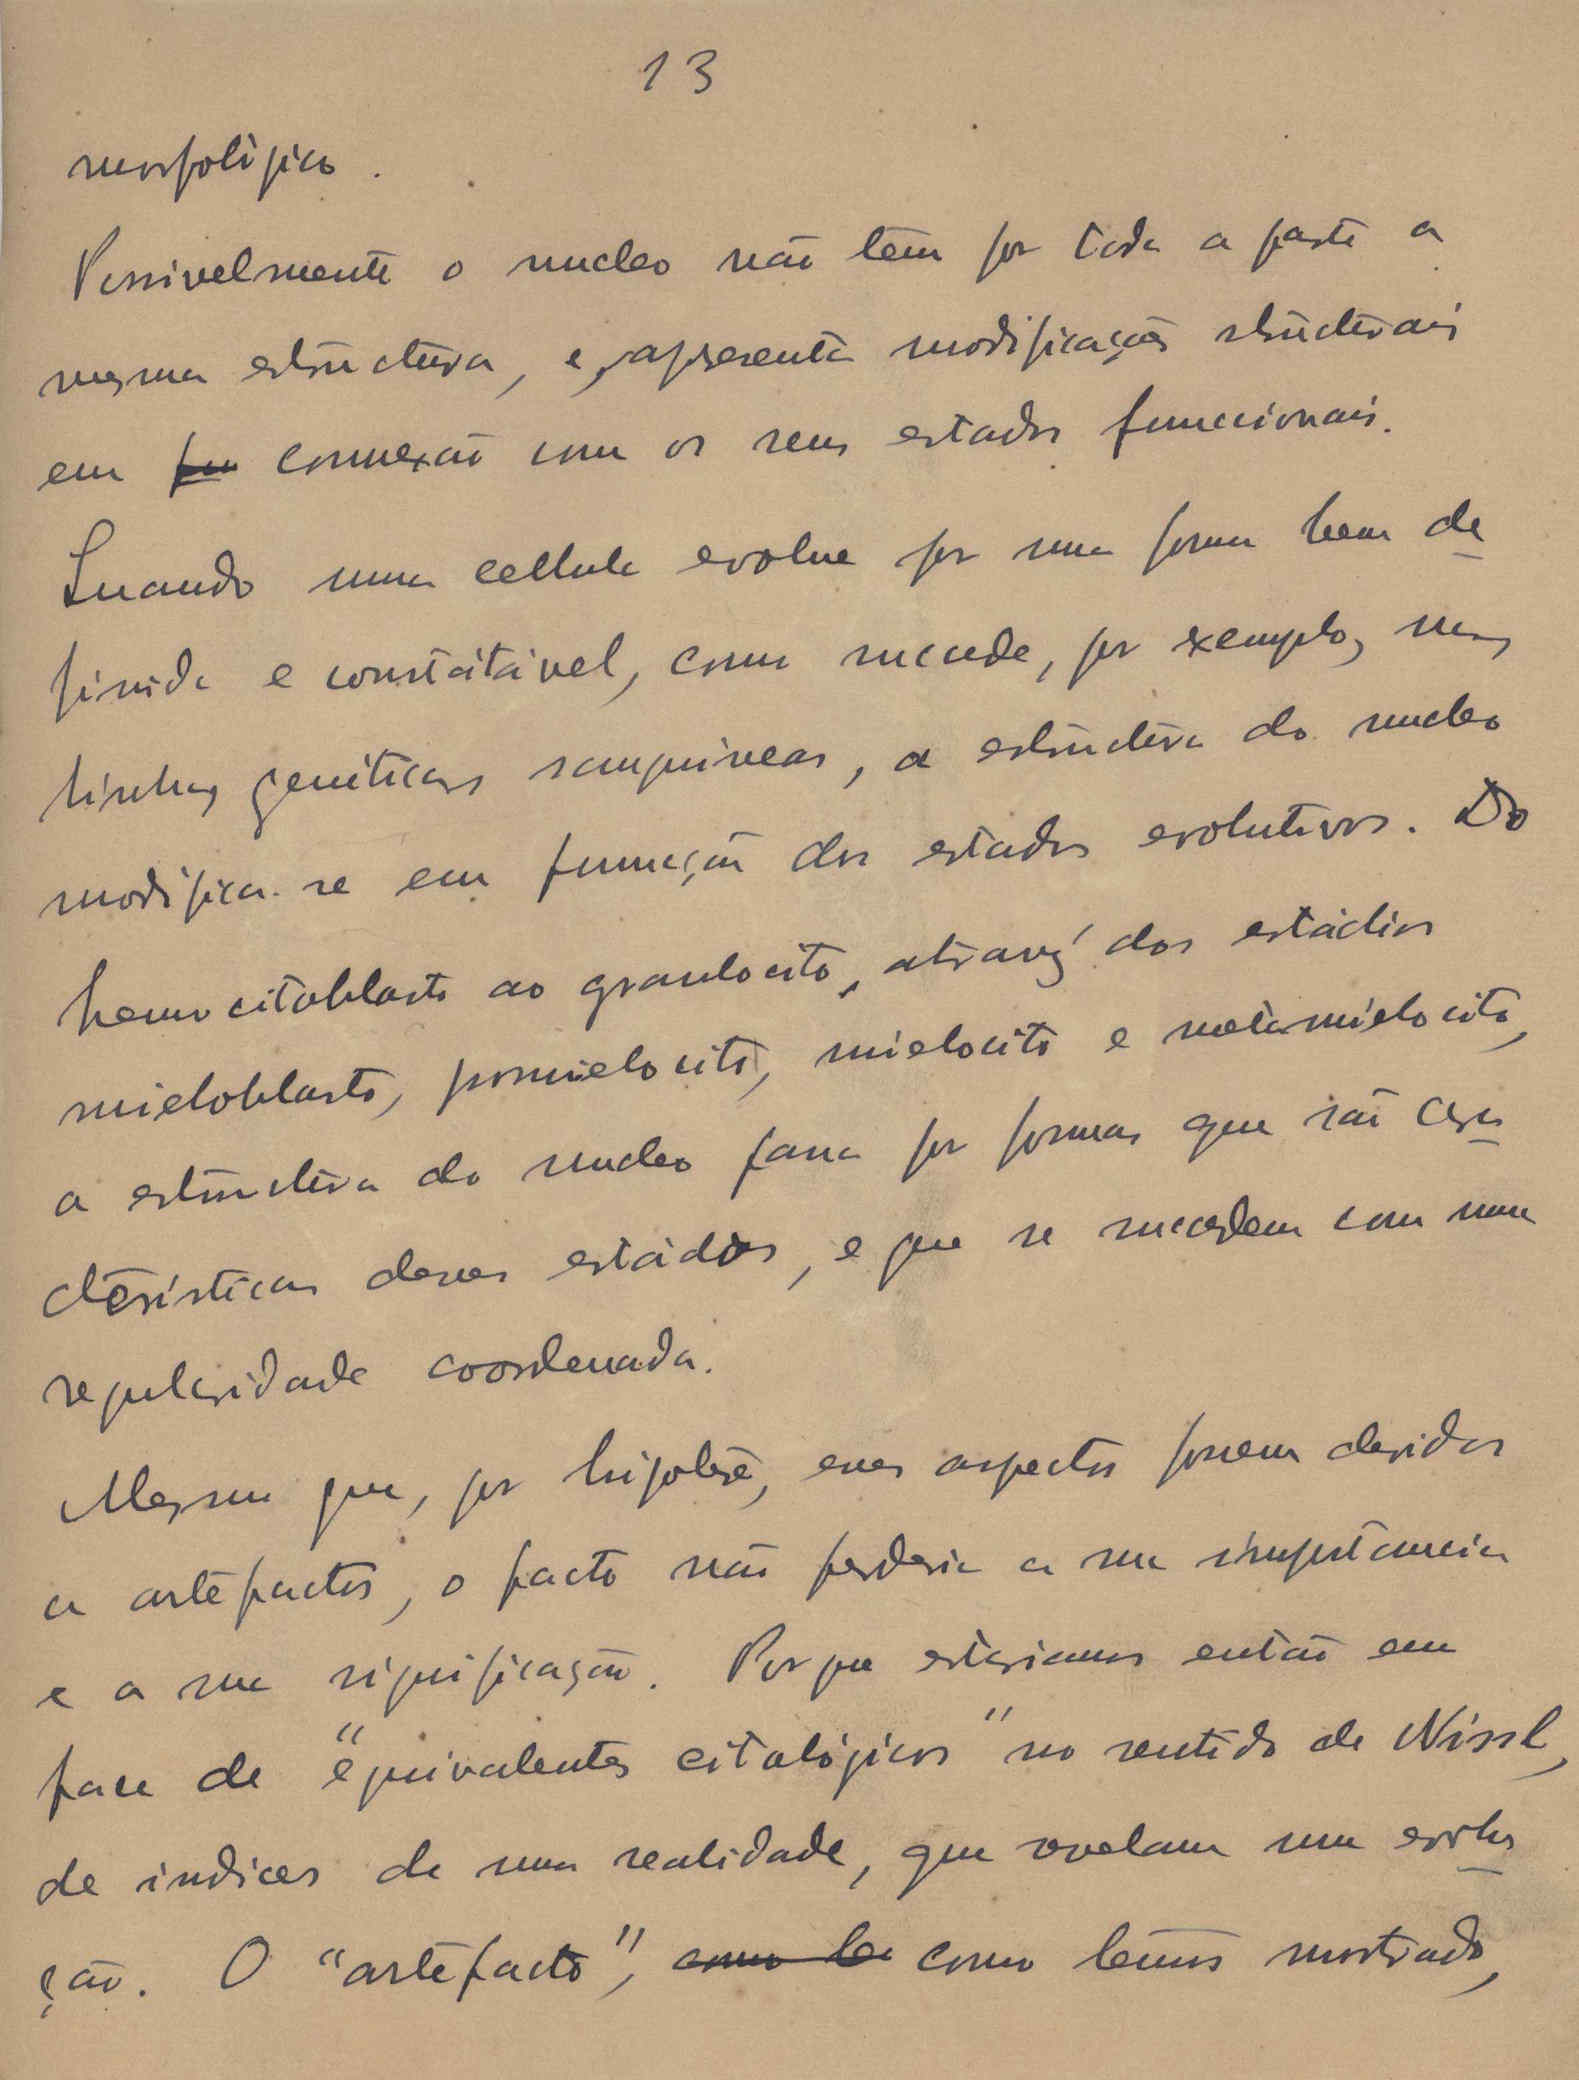 13
morfológico.
Possivelmente o nucleo não têm por toda a parte a
mesma estructura, e, apresenta modificações structurais
em connexão com os seus estados funccionais.
Quando uma cellula evolue por uma forma bem de
finida e constatável, como succede, por exemplo, nas
linhas genéticas sanguineas, a estructura do nucleo
modifica-se em funcção dos estados evolutivos. Do
hemocitoblasto ao granulocito, através dos estádios
mieloblasto, promielocito, mielocito e metamielocito,
a estructura do nucleo passa por formas que são cara
cterísticas desses estádios, e que se succedem com uma
regularidade coordenada.
Mesmo que, por hipotese, esses aspectos fossem devidos
a artefactos, o facto não perderia a sua importancia
e a sua significação. Porque estariamos então em
face de "equivalentes citológicos" no sentido de Nissl,
de indices de uma realidade, que revelam uma evolu
ção. O "artefacto", como temos mostrado,